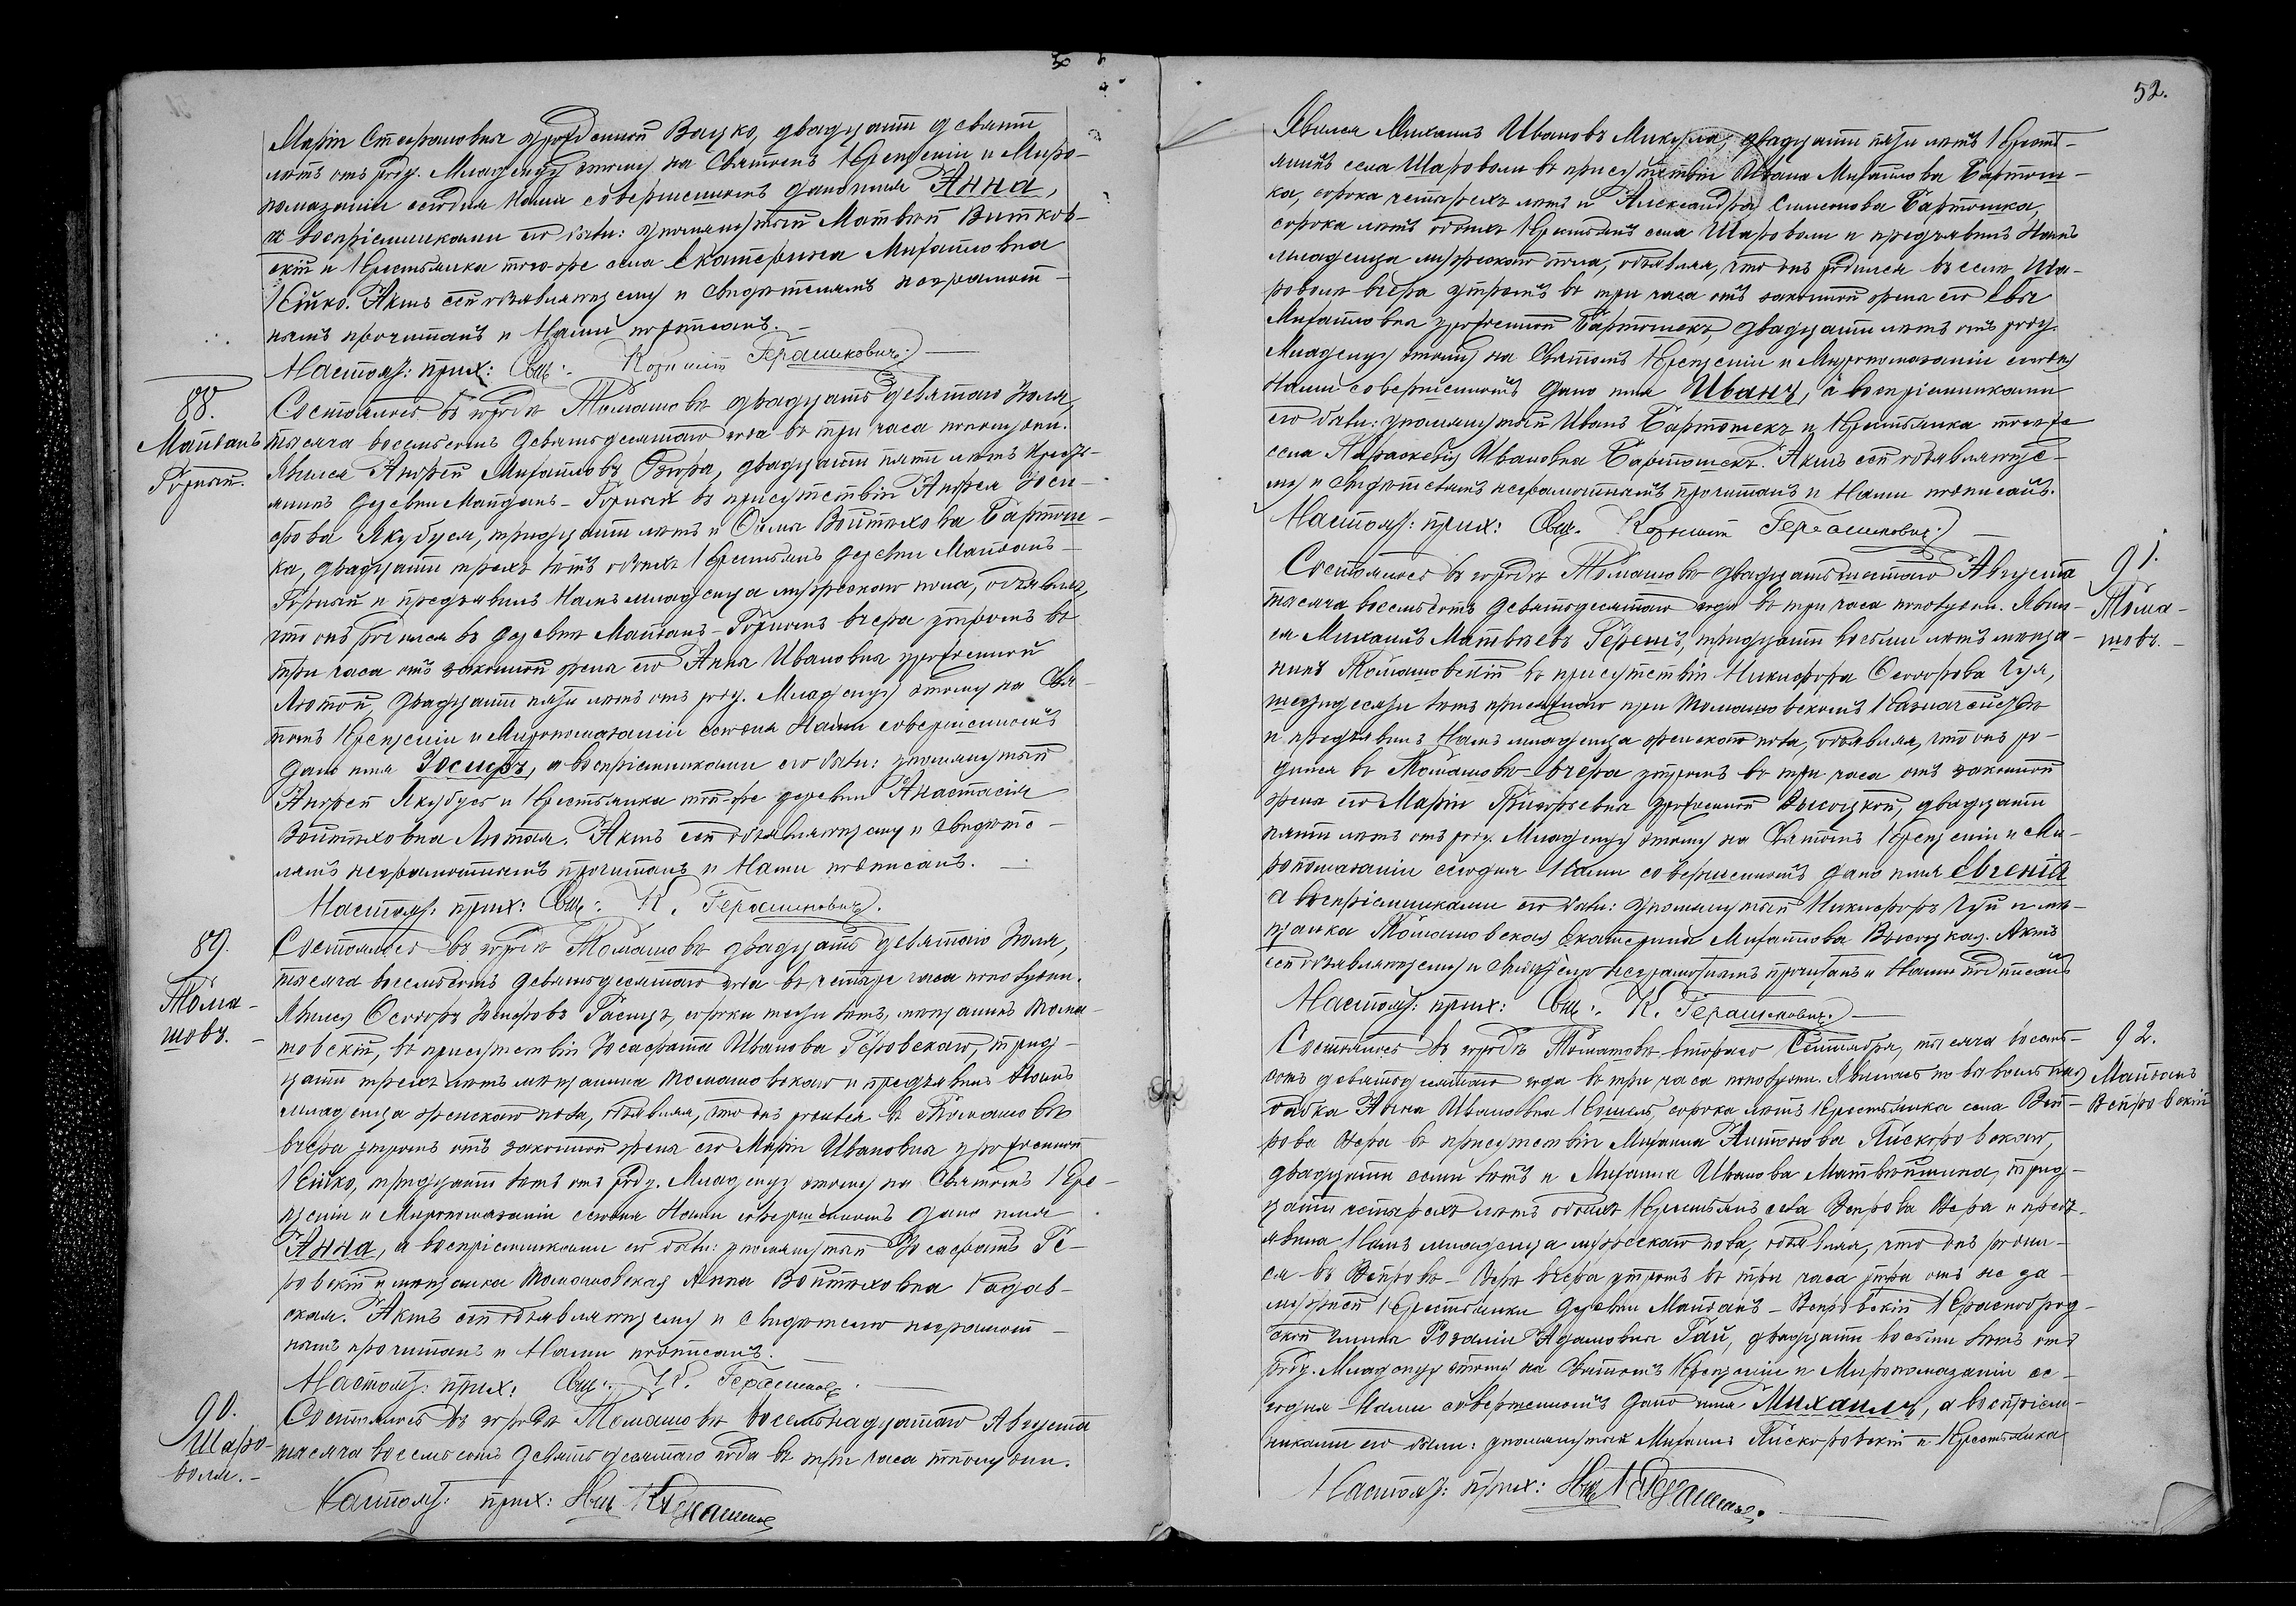 Маріи Стефановны урожденной Вацко, двадцати девяти
лѣтъ отъ роду. Младенцу этому на Святомъ Крещеніи и Миро-
помазаніи сегодня Нами совершенномъ дано имя Анна,
а воспріемниками его были: упомянутый Матвѣй Витков-
скій и Крестьянка того-же села Екатерина Михайловна
Кійко. Актъ сей объявляющему и свидѣтелямъ неграмот-
нымъ прочитанъ и Нами подписанъ.
Настоят: прих: Свщ: Корнилій Герашковичъ
88.
Майданъ
Горный.
Состоялось въ городѣ Томашовѣ двадцать девятаго Іюля,
тысяча восемьсотъ девятьдесятаго года въ три часа пополудни.
Явился Андрей Михайловъ двадцати пяти лѣтъ Кресть-
янинъ деревни Майданъ-Горный въ присутствіи Андрея Іоси-
фова Якубуся, тридцати лѣтъ и Ѳомы Войтѣхова Бартош-
ка, двадцати трехъ лѣтъ обоихъ Крестьянъ деревни Майданъ-
Горный и предъявилъ Намъ младенца мужескаго пола, объявляя,
что онъ родился въ деревнѣ Майданъ-Горномъ вчера утромъ въ
три часа отъ законной жены его Анны Ивановны урожденной
Лютой, двадцати пяти лѣтъ отъ роду. Младенцу этому на Свя-
томъ Крещеніи и Миропомазаніи сегодня Нами совершенномъ
дано имя Іосифъ, а воспріемниками его были: упомянутый
Андрей Якубусь и Крестьянка той-же деревни Анастасія
Войтѣховна Лютая. Актъ сей объявляющему и свидѣте-
лямъ неграмотнымъ прочитанъ и Нами подписанъ.
Настоят: прих: Свщ: К. Герашковичъ.
89.
Тома-
шовъ.
Состоялось въ городѣ Томашовѣ двадцать девятаго Іюля,
тысяча восемьсотъ девятьдесятаго года въ четыре часа пополудни.
Явился Ѳеодоръ Іосифовъ сорока лѣтъ, мѣщанинъ Тома-
шовскій, въ присутствіи Іосафата Иванова Геровскаго, трид-
цати трехъ лѣтъ мѣщанина Томашовскаго и предъявилъ Намъ
младенца женскаго пола, объявляя, что онъ родился въ Томашовѣ
вчера утромъ отъ законной жены его Маріи Ивановны урожденной
Кійко, тридцати лѣтъ отъ роду. Младенцу этому на Святомъ Кре-
щеніи и Миропомазаніи сегодня Нами совершенномъ дано имя
Анна, а воспріемниками его были: упомянутый Іосафатъ Ге-
ровскій и мѣщанка Томашовская Анна Войтѣховна Кадов-
ская. Актъ сей объявляющему и свидѣтелю неграмот-
нымъ прочитанъ и Нами подписанъ.
Настоят: прих: Свщ: К. Герашков
90.
Шаро-
воля.-
Состоялось въ городѣ Томашовѣ восемьнадцатаго Августа
тысяча восемьсотъ девятьдесятаго года въ три часа пополудни.
Настоят: прих: Свщ К Герашков
52.
Явился Михаилъ Ивановъ Микула, двадцати пяти лѣтъ Кресть-
янинъ села Шароволи въ присутствіи Ивана Михайлова Бартош-
ка, сорока четырехъ лѣтъ и Александра Симеонова Бартошка,
сорока лѣтъ обоихъ Крестьянъ села Шароволи и предъявилъ Намъ
младенца мужескаго пола, объявляя, что онъ родился въ селѣ Ша-
роволи вчера утромъ въ три часа отъ законной жены его Евы
Михайловны урожденной Бартошекъ, двадцати лѣтъ отъ роду.
Младенцу этому на Святомъ Крещеніи и Миропомазаніи сегодня
Нами совершенномъ дано имя Иванъ, а воспріемниками
его были: упомянутый Иванъ Бартошекъ и Крестьянка того-же
села Параскевія Ивановна Бартошекъ. Актъ сей объявляюще-
му и свидѣтелямъ неграмотнымъ прочитанъ и Нами подписанъ.
Настоят: прих: Свщ. Корнилій Герашковичъ
91.
Тома-
шовъ.-
Состоялось въ городѣ Томашовѣ двадцать шестаго Августа
тысяча восемьсотъ девятьдесятаго года въ три часа пополудни. Явил-
ся Михаилъ Матвѣевъ Геренъ, тридцати восьми лѣтъ мѣща-
нинъ Томашовскій въ присутствіи Никифора Ѳеодорова Чуя,
шестидесяти лѣтъ присяжнаго при Томашовскомъ Казначействѣ
и предъявилъ Намъ младенца женскаго пола, объявляя, что онъ ро-
дился въ Томашовѣ вчера утромъ въ три часа отъ законной
жены его Маріи Григорьевны урожденной Высоцкой, двадцати
пяти лѣтъ отъ роду. Младенцу этому на Святомъ Крещеніи и Ми-
ропомазаніи сегодня Нами совершенномъ дано имя Евгенія
а воспріемниками его были: упомянутый Никифоръ Чуй и мѣ-
щанка Томашовская Екатерина Михайлова Высоцкая. Актъ
сей объявляющему и свидѣтелю неграмотнымъ прочитанъ и Нами подписанъ
Настоят: прих: Свщ: К. Герашковичъ.
92.
Майданъ
Вепровскій
Состоялось въ городѣ Томашовѣ втораго Сентября, тысяча восемь-
сотъ девятьдесятаго года въ три часа пополудни. Явилась повивальная
бабка Анна Ивановна Кошель, сорока лѣтъ Крестьянка села Веп-
рова Озера въ присутствіи Михаила Антонова Пискоровскаго,
двадцати семи лѣтъ и Михаила Иванова Матвѣйшина, трид-
цати четырехъ лѣтъ обоихъ Крестьянъ села Вепрова Озера и предъ-
явила Намъ младенца мужескаго пола, объявляя, что онъ родил-
ся въ Вепровѣ-Озерѣ вчера утромъ въ три часа утра отъ не за-
мужней Крестьянки деревни Майданъ-Вепровскій Красноброд-
ской гмины Розаліи Адамовны Гай, двадцати восьми лѣтъ отъ
роду. Младенцу этому на Святомъ Крещеніи и Миропомазаніи се-
годня Нами совершенномъ дано имя Михаилъ, а воспріем-
никами его были: упомянутый Михаилъ Пискоровскій и Крестьянка
Настоят: прих: Свщ К Герашков.